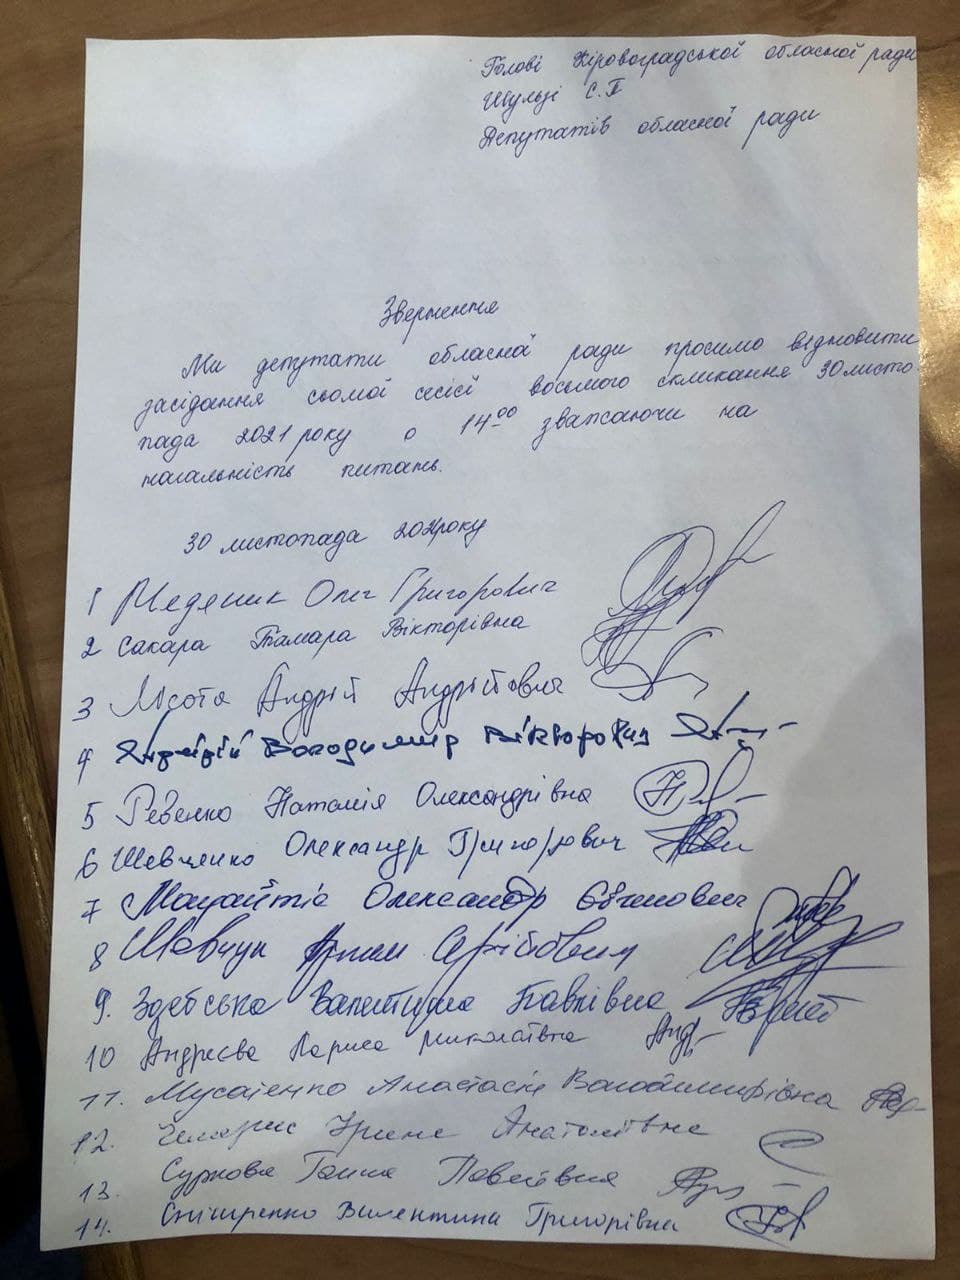 Голові Кіровоградської обласної ради
Шульзі С.П
Депутатів обласної ради
Звернення
Ми депутати обласної ради просимо відновити
засідання сьомої сесії восьмого скликання 30 листо
пада 2021 року о 14⁰⁰ зважаючи на
нагальність питань.
30 листопада 2021 року
1 Медяник Олег Григорович
2 Сакара Тамара Вікторівна
3 Лісота Андрій Андрійович
4 Володимир Вікторович
5 Ревенко Наталія Олександрівна
6 Шевченко Олександр Григорович
7 Олександр Євгенович
8 Шевчук Сергійович
9. Здебська Валентина Павлівна
10 Андреєва Лариса Миколаївна
11. Мусатенко Анастасія Володимирівна
12. Ірина Анатоліївна
13. Суркова Ганна Павлівна
14. Валентина Григорівна